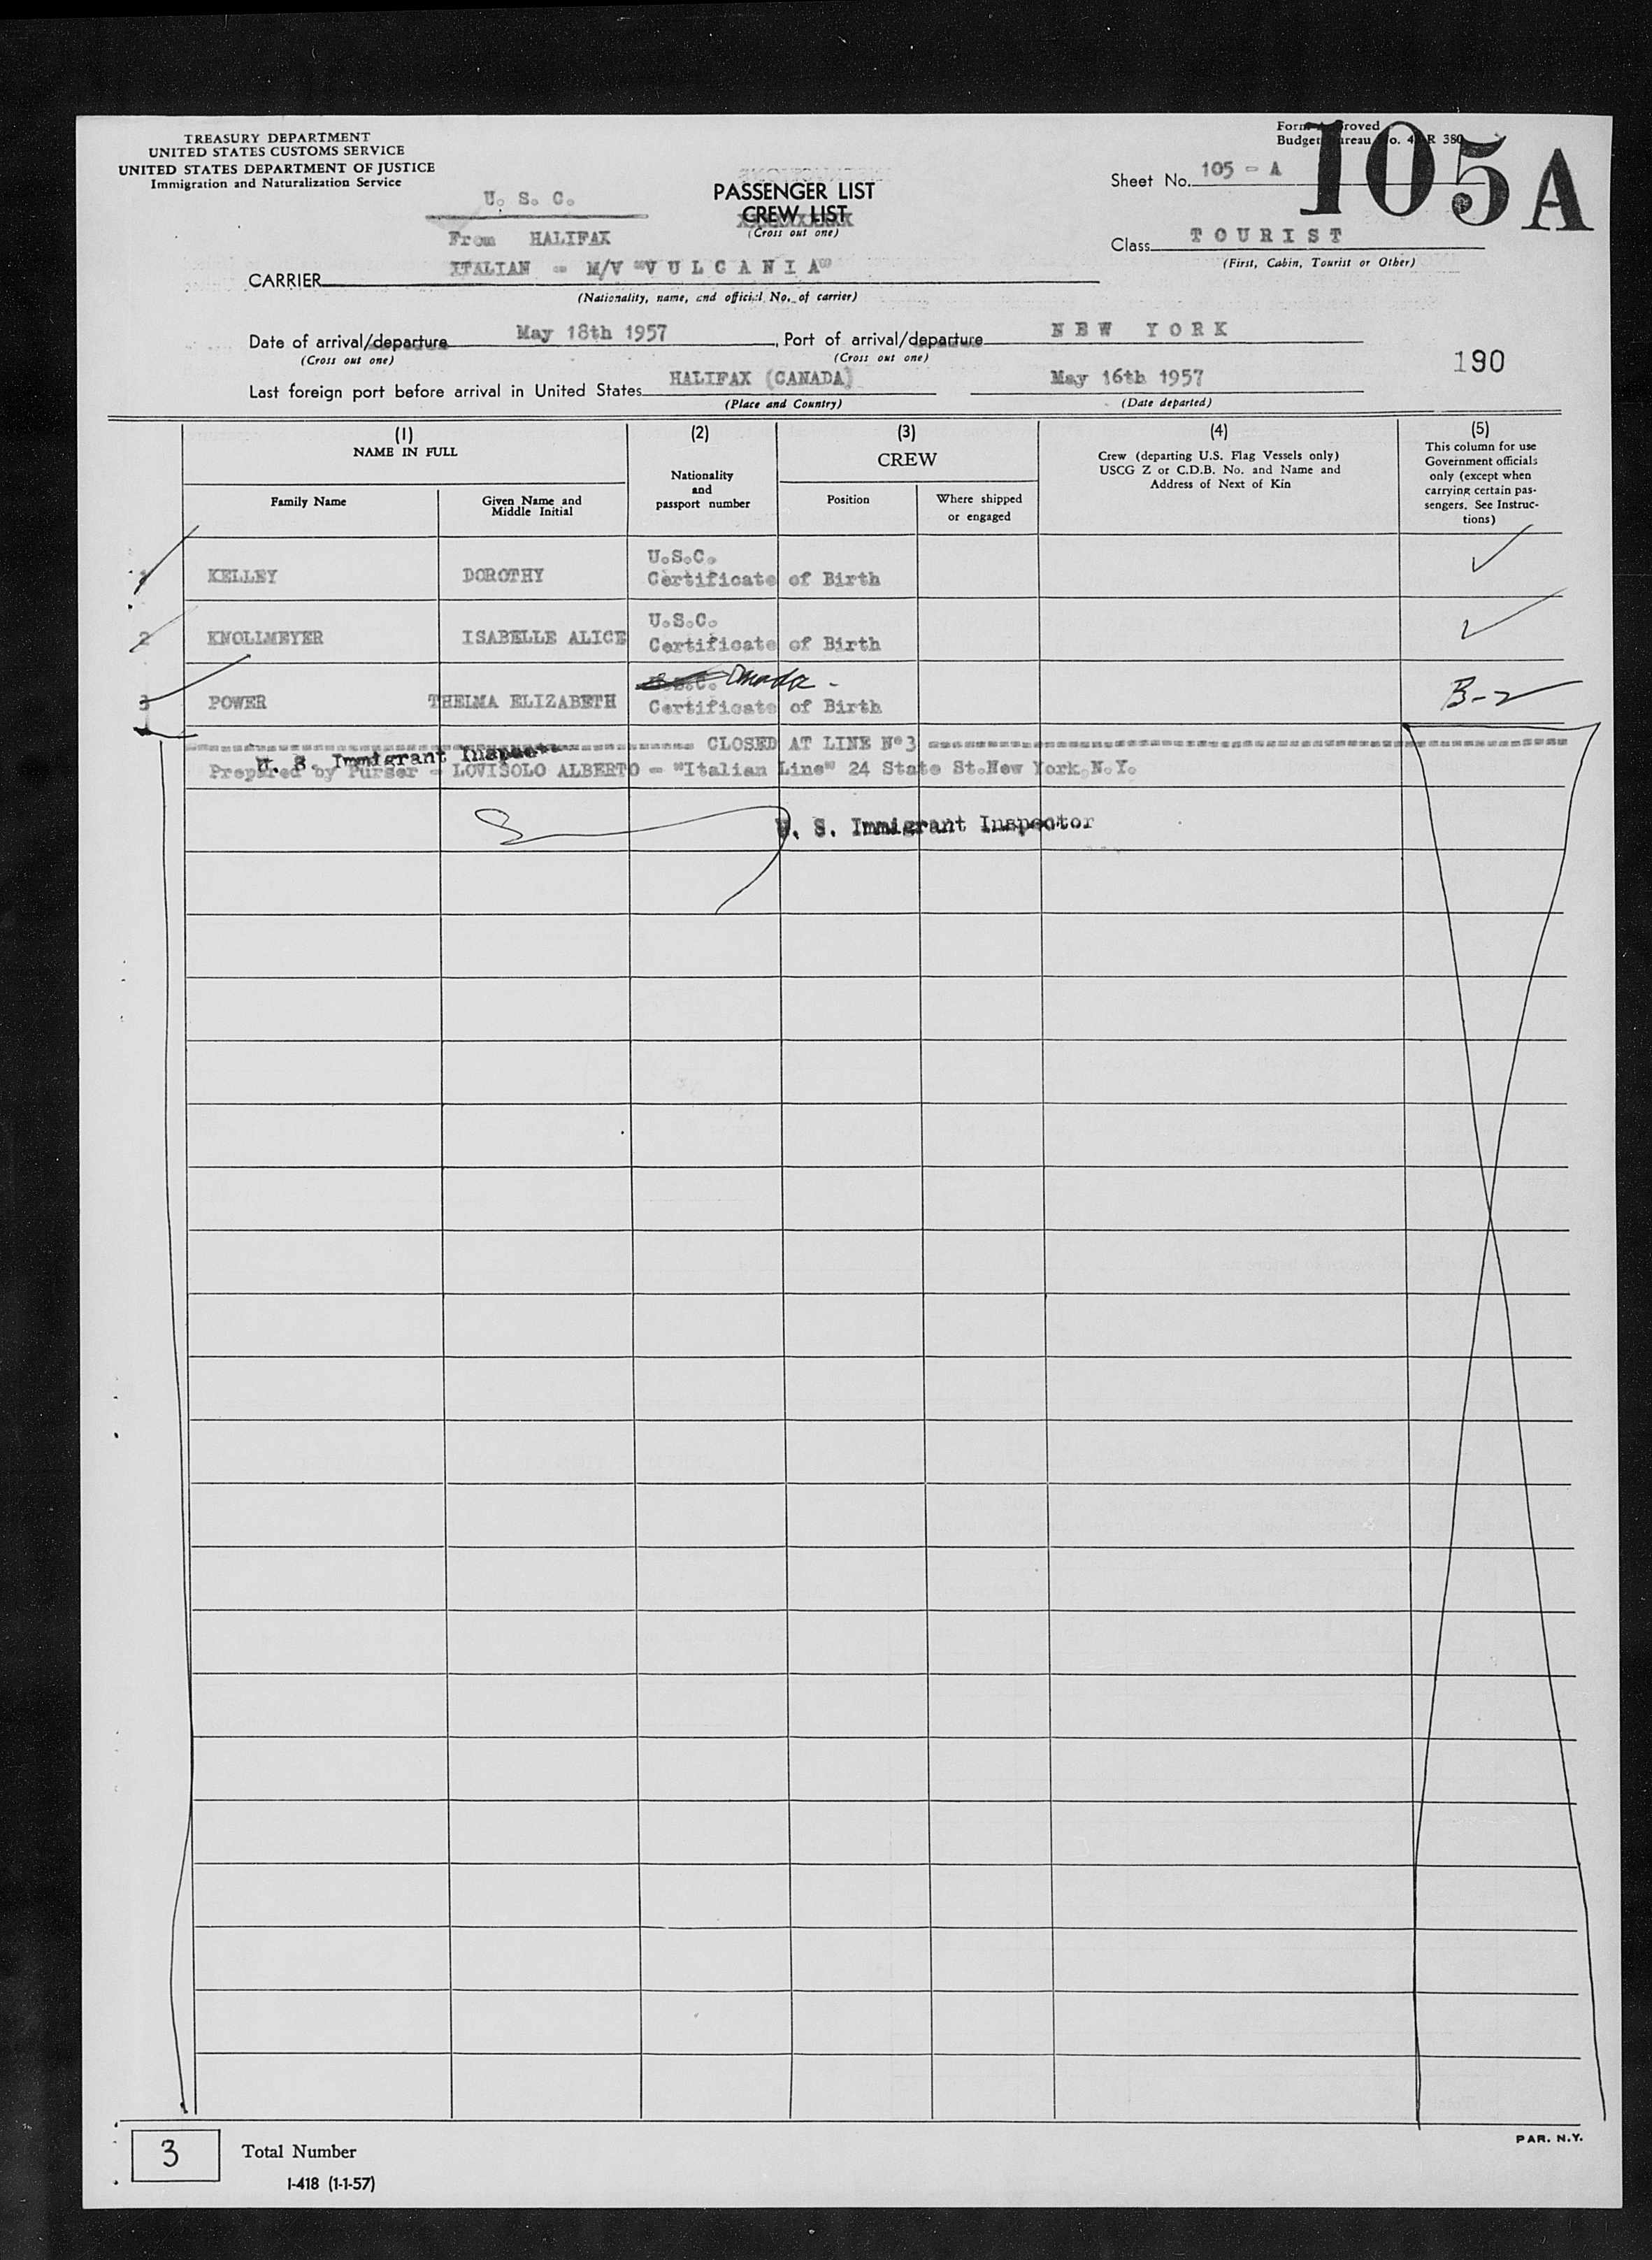 TREASURY DEPARTMENT
UNITED STATES CUSTOMS SERVICE
UNITED STATES DEPARTMENT OF JUSTICE
Immigration and Naturalization Service
U. S. C.
From HALIFAX
PASSENGER LIST
CREW LIST
(Cross out one)
Form Approved
Budget Bureau No. R 380
Sheet No. 105 - A
105A
Class TOURIST
(First, Cabin, Tourist or Other)
CARRIER ITALIAN - M/V "VULCANIA"
(Nationality, name, and official No. of carrier)
Date of arrival/departure May 18th 1957, Port of arrival/departure NEW YORK
(Cross out one) (Cross out one)
190
Last foreign port before arrival in United States HALIFAX (CANADA) May 16th 1957
(Place and Country) (Date departed)
(1)
NAME IN FULL
Family Name
Given Name and
Middle Initial
(2)
Nationality
and
passport number
(3)
CREW
Position
Where shipped
or engaged
(4)
Crew (departing U.S. Flag Vessels only)
USCG Z or C.D.B. No. and Name and
Address of Next of Kin
(5)
This column for use
Government officials
only (except when
carrying certain pas-
sengers. See Instruc-
tions)
U.S.C.
1 KELLEY DOROTHY Certificate of Birth
U.S.C.
2 KNOLLMEYER ISABELLE ALICE Certificate of Birth
U.S.C. Canada -
3 POWER THELMA ELIZABETH Certificate of Birth B-2
CLOSED AT LINE N°3
U. S. Immigrant Inspector
Prepared by Purser - LOVISOLO ALBERTO - "Italian Line" 24 State St.New York,N.Y.
U. S. Immigrant Inspector
3 Total Number
I-418 (1-1-57)
PAR. N.Y.